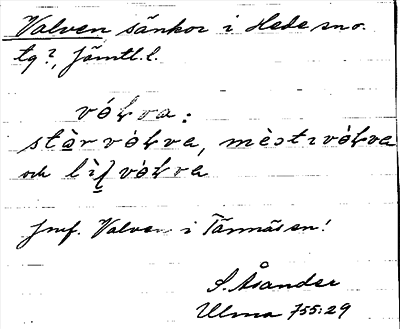 Valven sänkor i Hede sn o.
tg?, Jämtl. l.
vóɫva:
stàrvóɫva, mèstivóɫva
och lìɫvóɫva
Jmf. Valven i Tännäs en!
S. Åsander
Ulma 755:29